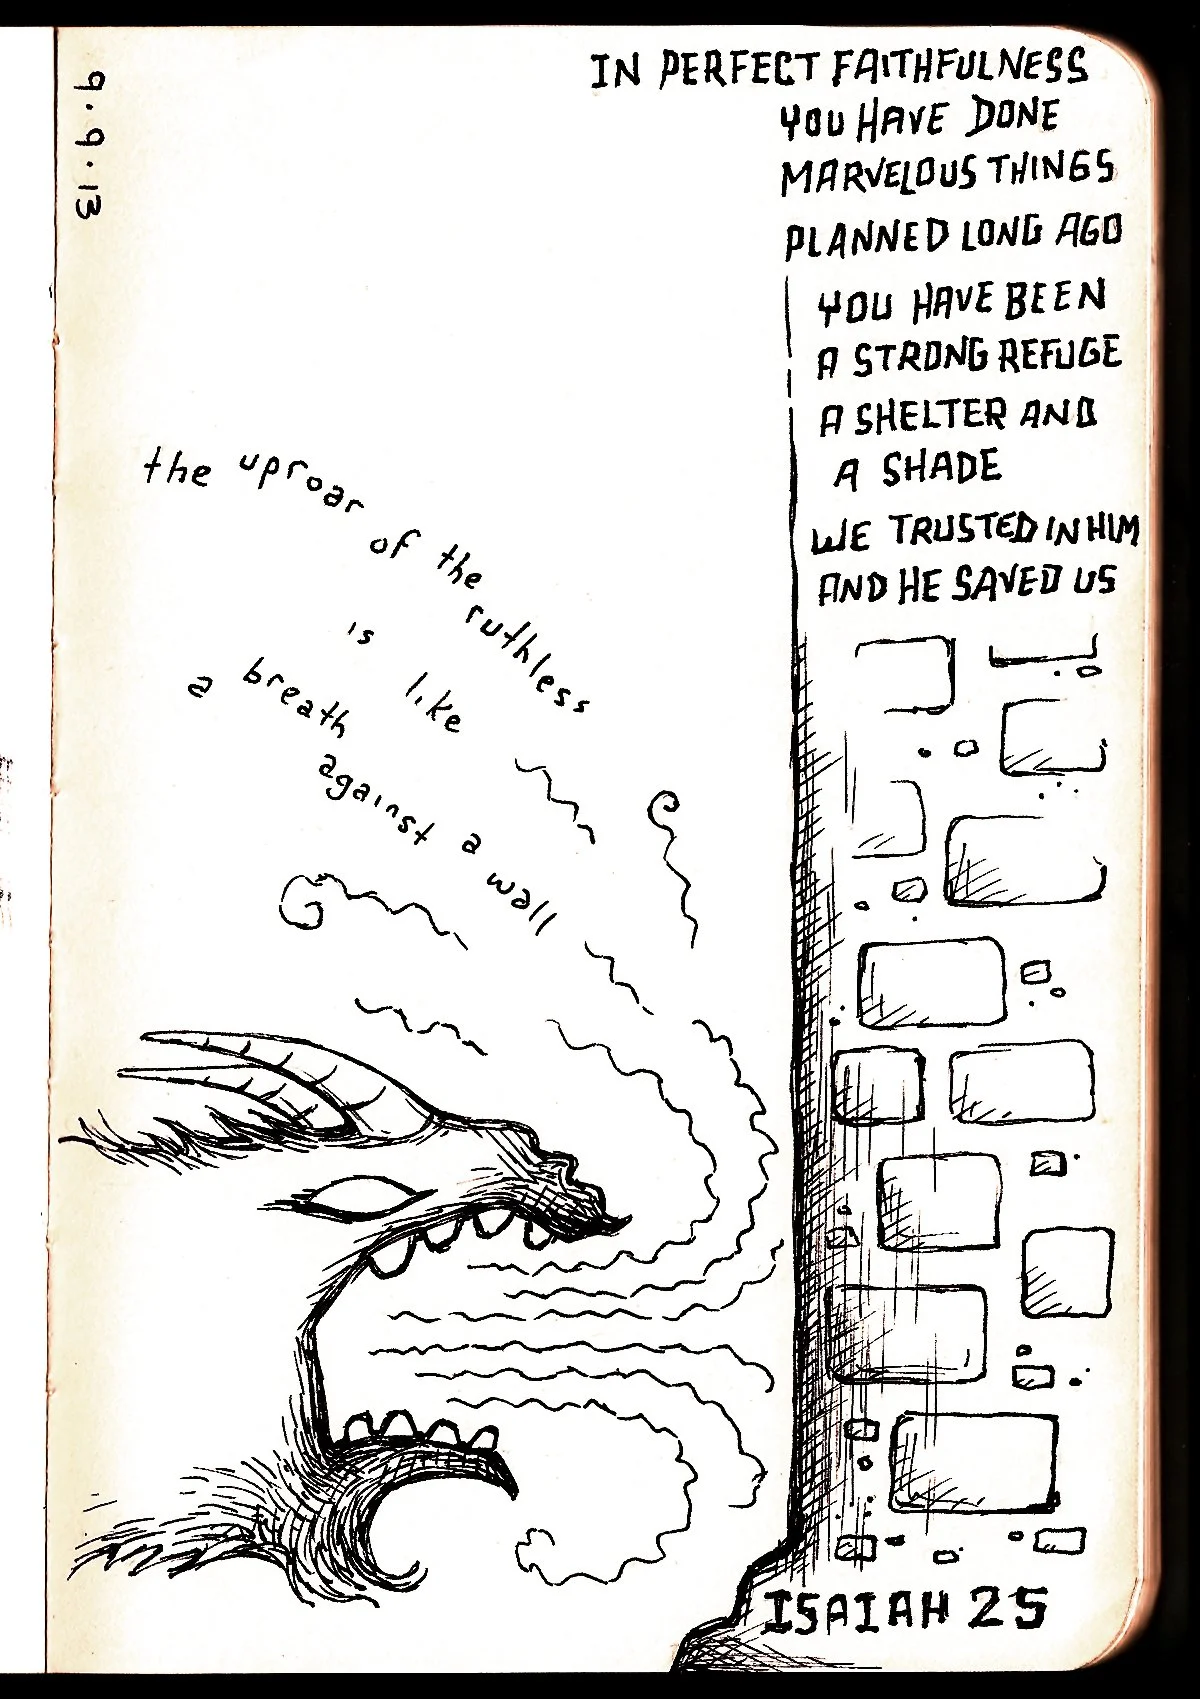 9.9.13
IN PERFECT FAITHFULNESS
YOU HAVE DONE
MARVELOUS THINGS
PLANNED LONG AGO
YOU HAVE BEEN
A STRONG REFUGE
A SHELTER AND
A SHADE
WE TRUSTED IN HIM
AND HE SAVED US
the uproar
of the
ruthless
is like
a breath
against a wall
ISAIAH 25